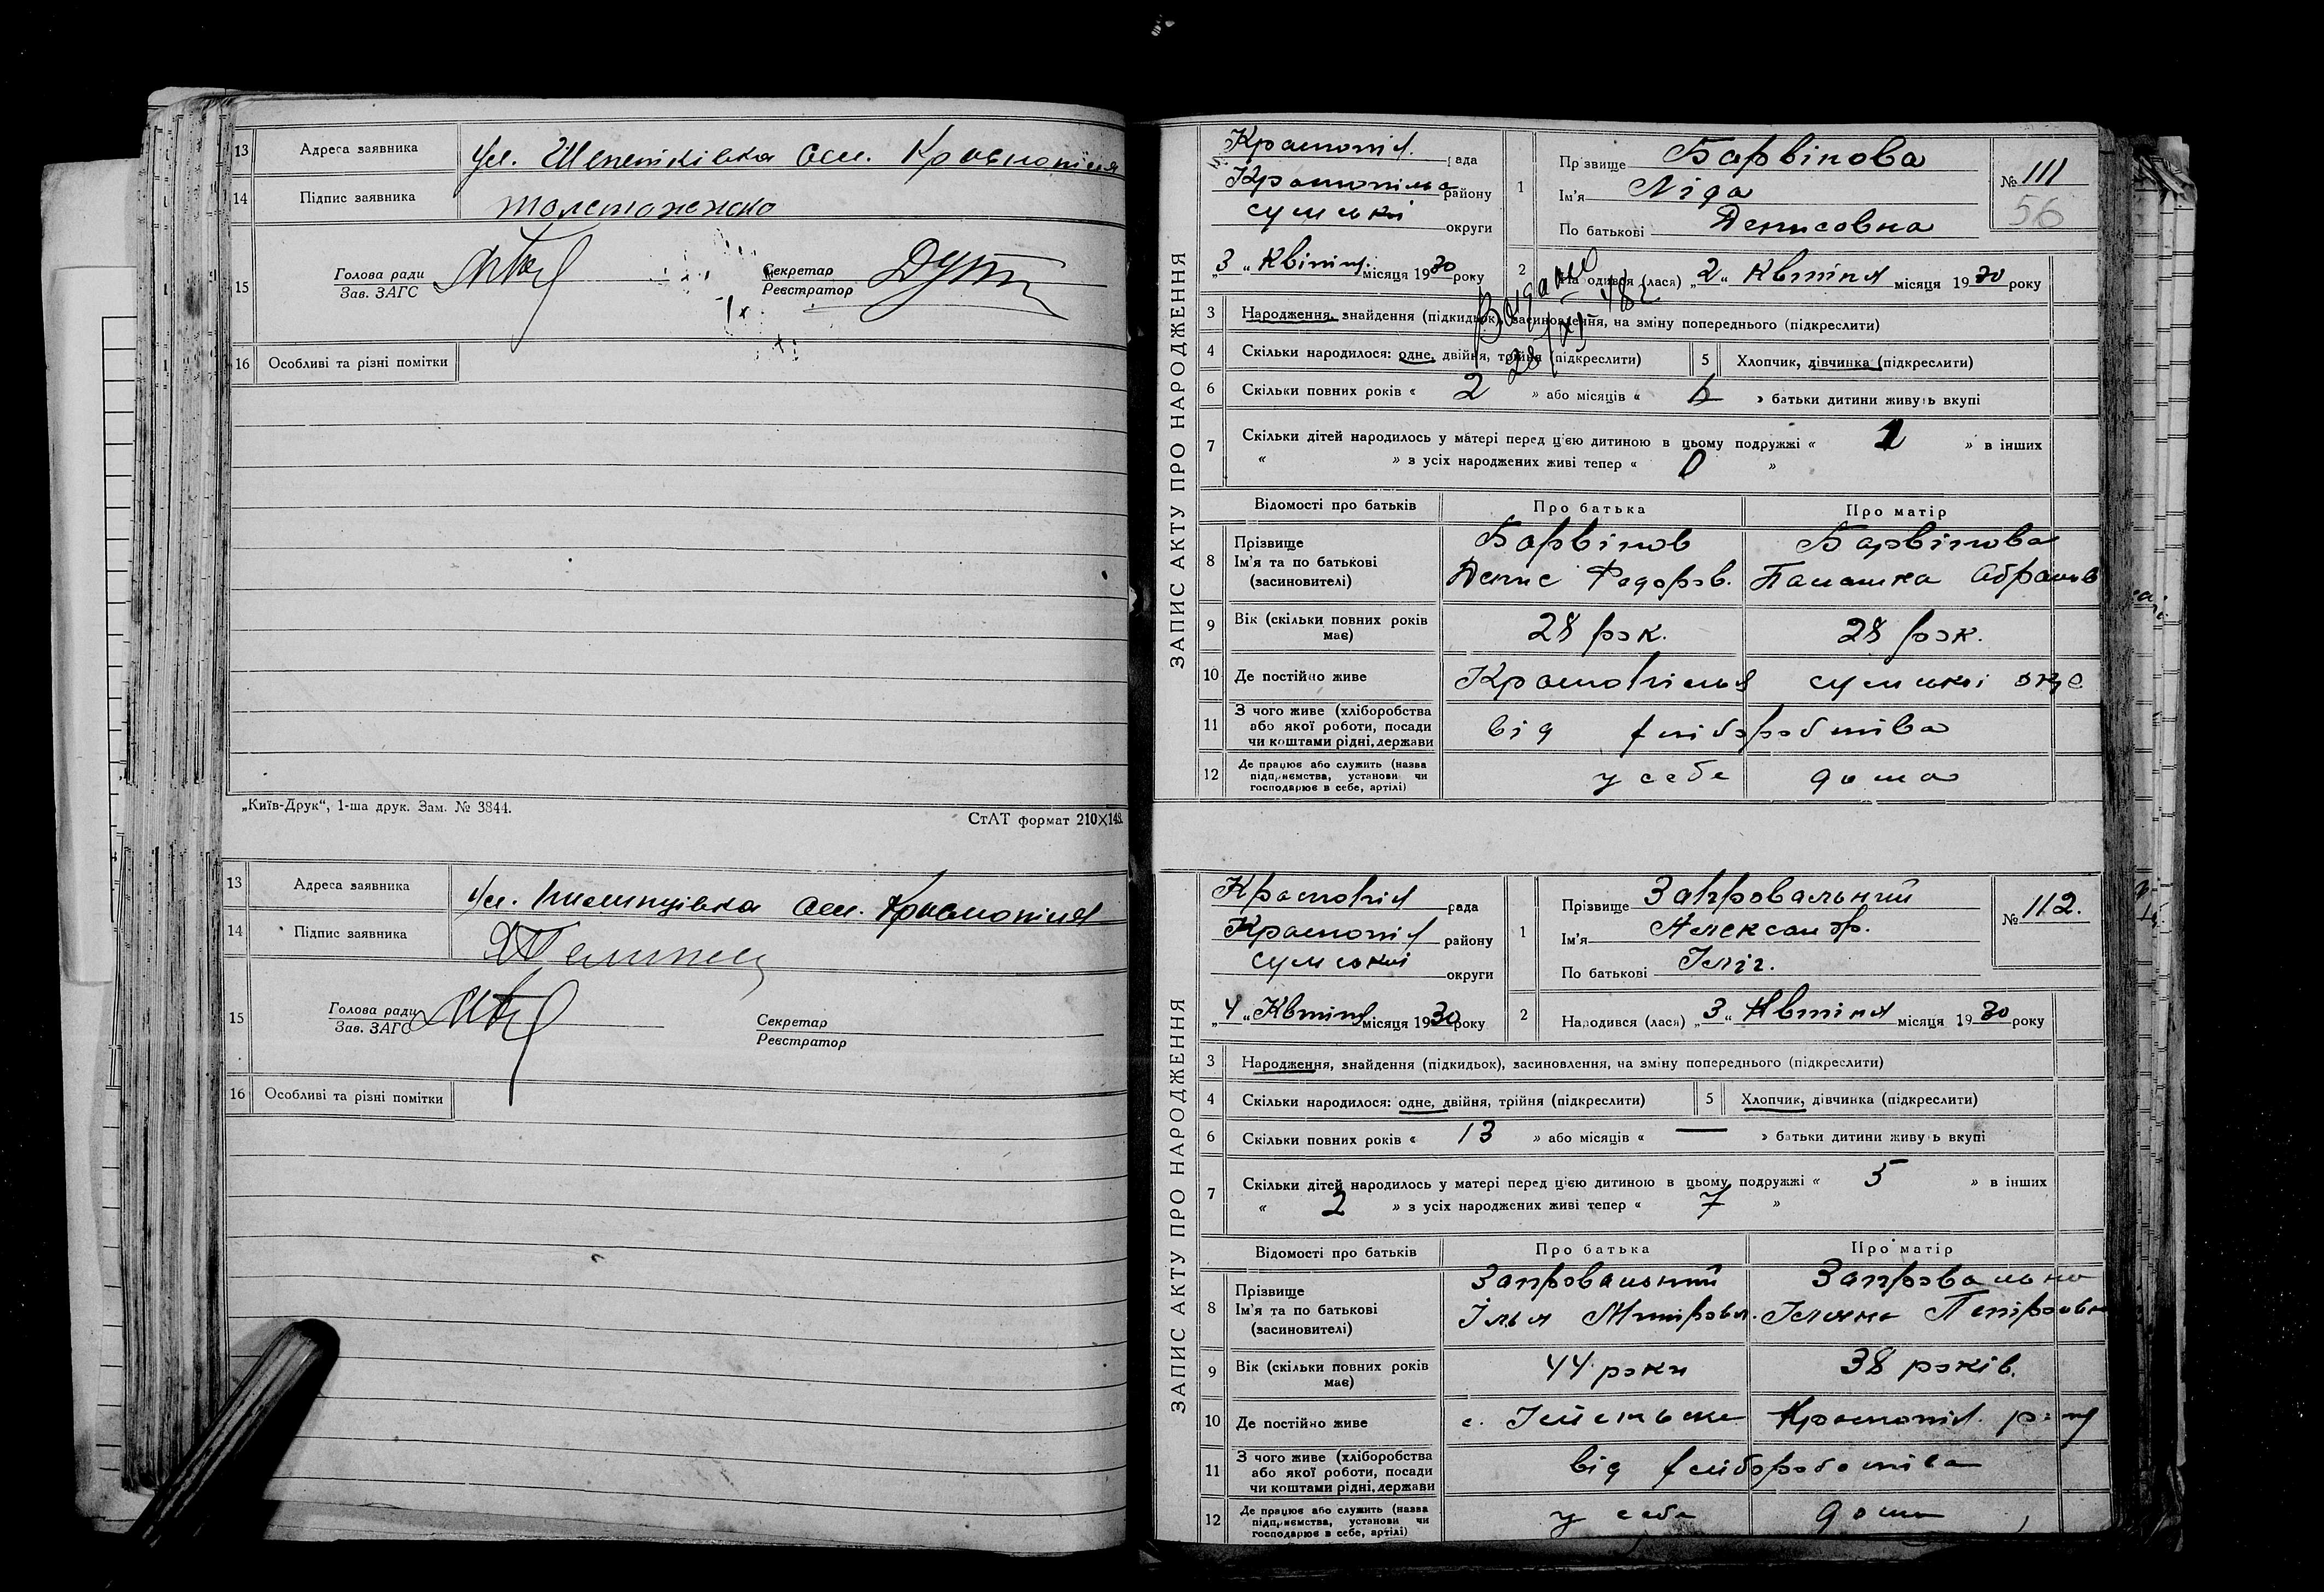 13 Адреса заявника ул. сел. Краснопілля
14 Підпис заявника
15 Голова ради
Зав. ЗАГС
Секретар
Реєстратор
16 Особливі та різні помітки
„Київ-Друк“, 1-ша друк. Зам. № 3844.
СтАТ формат 210×148.
13 Адреса заявника ул. сел. Краснопілля
14 Підпис заявника
15 Голова ради
Зав. ЗАГС
Секретар
Реєстратор
16 Особливі та різні помітки
ЗАПИС АКТУ ПРО НАРОДЖЕННЯ
Краснопіл. рада
Краснопілля району
сумської округи
„3“ Квітня місяця 1930 року
1 Прізвище Барвінова
Ім'я Ліда
По батькові Денисовна
№ 111
56
2 Народився (лася) „2“ Квітня місяця 1930 року
Видано
28/XI 48 г
3 Народження, знайдення (підкидьок), засиновлення, на зміну попереднього (підкреслити)
4 Скільки народилося: одне, двійня, трійня (підкреслити)
5 Хлопчик, дівчинка (підкреслити)
6 Скільки повних років « 2 » або місяців « » батьки дитини живуть вкупі
7 Скільки дітей народилось у матері перед цією дитиною в цьому подружжі « 1 » в інших
« » з усіх народжених живі тепер « 0 »
Відомості про батьків Про батька Про матір
8 Прізвище Барвінов Барвінова
Ім'я та по батькові Денис Федоров. Абрамов
(засиновителі)
9 Вік (скільки повних років 28 рок. 28 рок.
має)
10 Де постійно живе Краснопілля сумської
11 З чого живе (хліборобства
або якої роботи, посади від хліборобства
чи коштами рідні, держави
12 Де працює або служить (назва
підприємства, установи чи у себе дома
господарює в себе, артілі)
ЗАПИС АКТУ ПРО НАРОДЖЕННЯ
Краснопіл рада
Краснопіл району
сумської округи
„4“ Квітня місяця 1930 року
1 Прізвище Запровальний
Ім'я Александр.
По батькові Іліч.
№ 112.
2 Народився (лася) „3“ Квітня місяця 1930 року
3 Народження, знайдення (підкидьок), засиновлення, на зміну попереднього (підкреслити)
4 Скільки народилося: одне, двійня, трійня (підкреслити)
5 Хлопчик, дівчинка (підкреслити)
6 Скільки повних років « 13 » або місяців « — » батьки дитини живуть вкупі
7 Скільки дітей народилось у матері перед цією дитиною в цьому подружжі « 5 » в інших
« 2 » з усіх народжених живі тепер « 7 »
Відомості про батьків Про батька Про матір
8 Прізвище Запровальний Запровальна
Ім'я та по батькові Ілья Петровна
(засиновителі)
9 Вік (скільки повних років 44 роки 38 років.
має)
10 Де постійно живе с. Краснопіл.
11 З чого живе (хліборобства
або якої роботи, посади від хліборобства
чи коштами рідні, держави
12 Де працює або служить (назва
підприємства, установи чи у себе дома
господарює в себе, артілі)